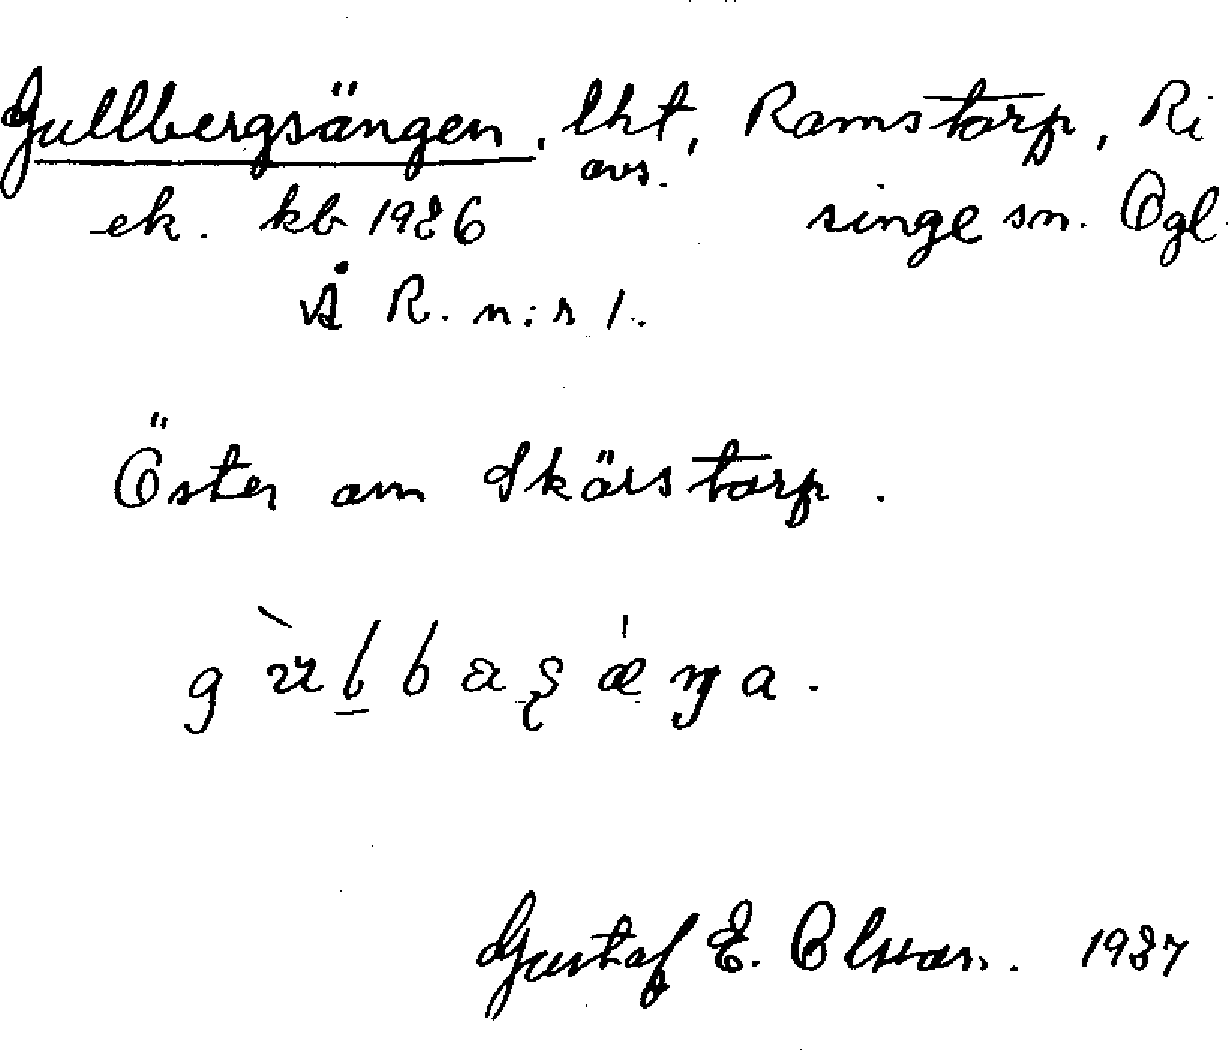 Gullbergsängen, lht, Ramstorp, Ri
avs.
ek. kb 1936 singe sn. Ögl.
Å R. n:r 1.
Öster om Skärstorp.
Gustaf E. Olsson. 1937